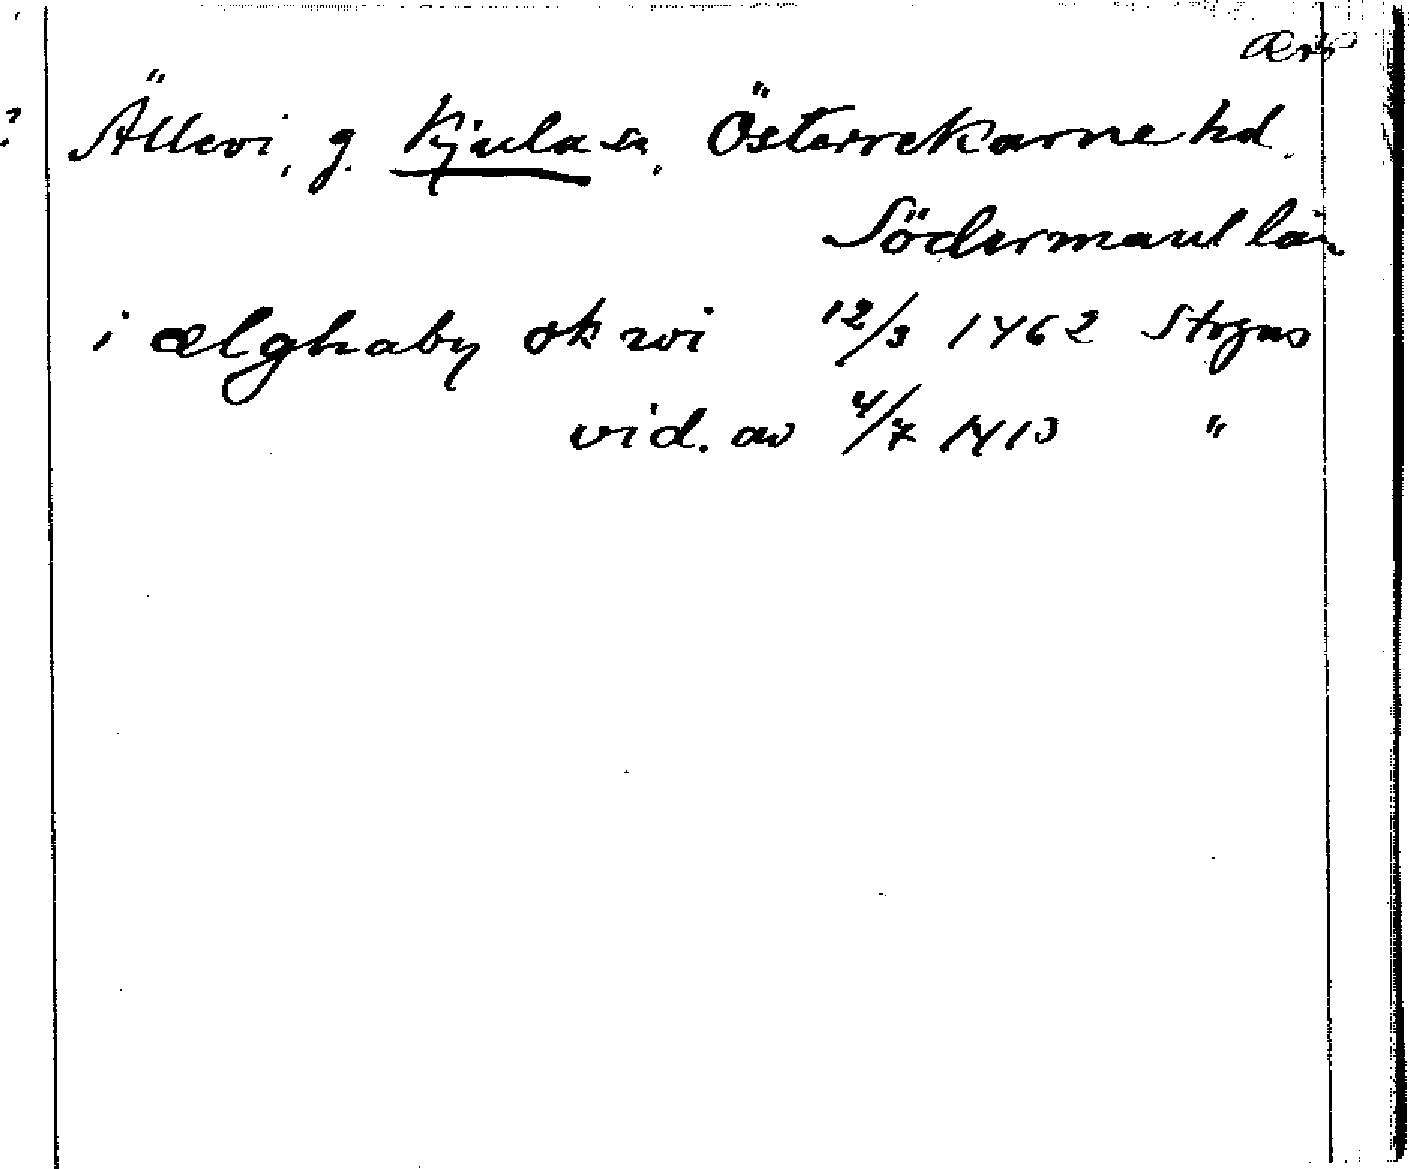 ?
Ällevi, g. Kjula sn, Österrekarne hd.
Södermanl län
i ælghaby ok wi 12/3 1462 Strgns
vid. av 4/7 "